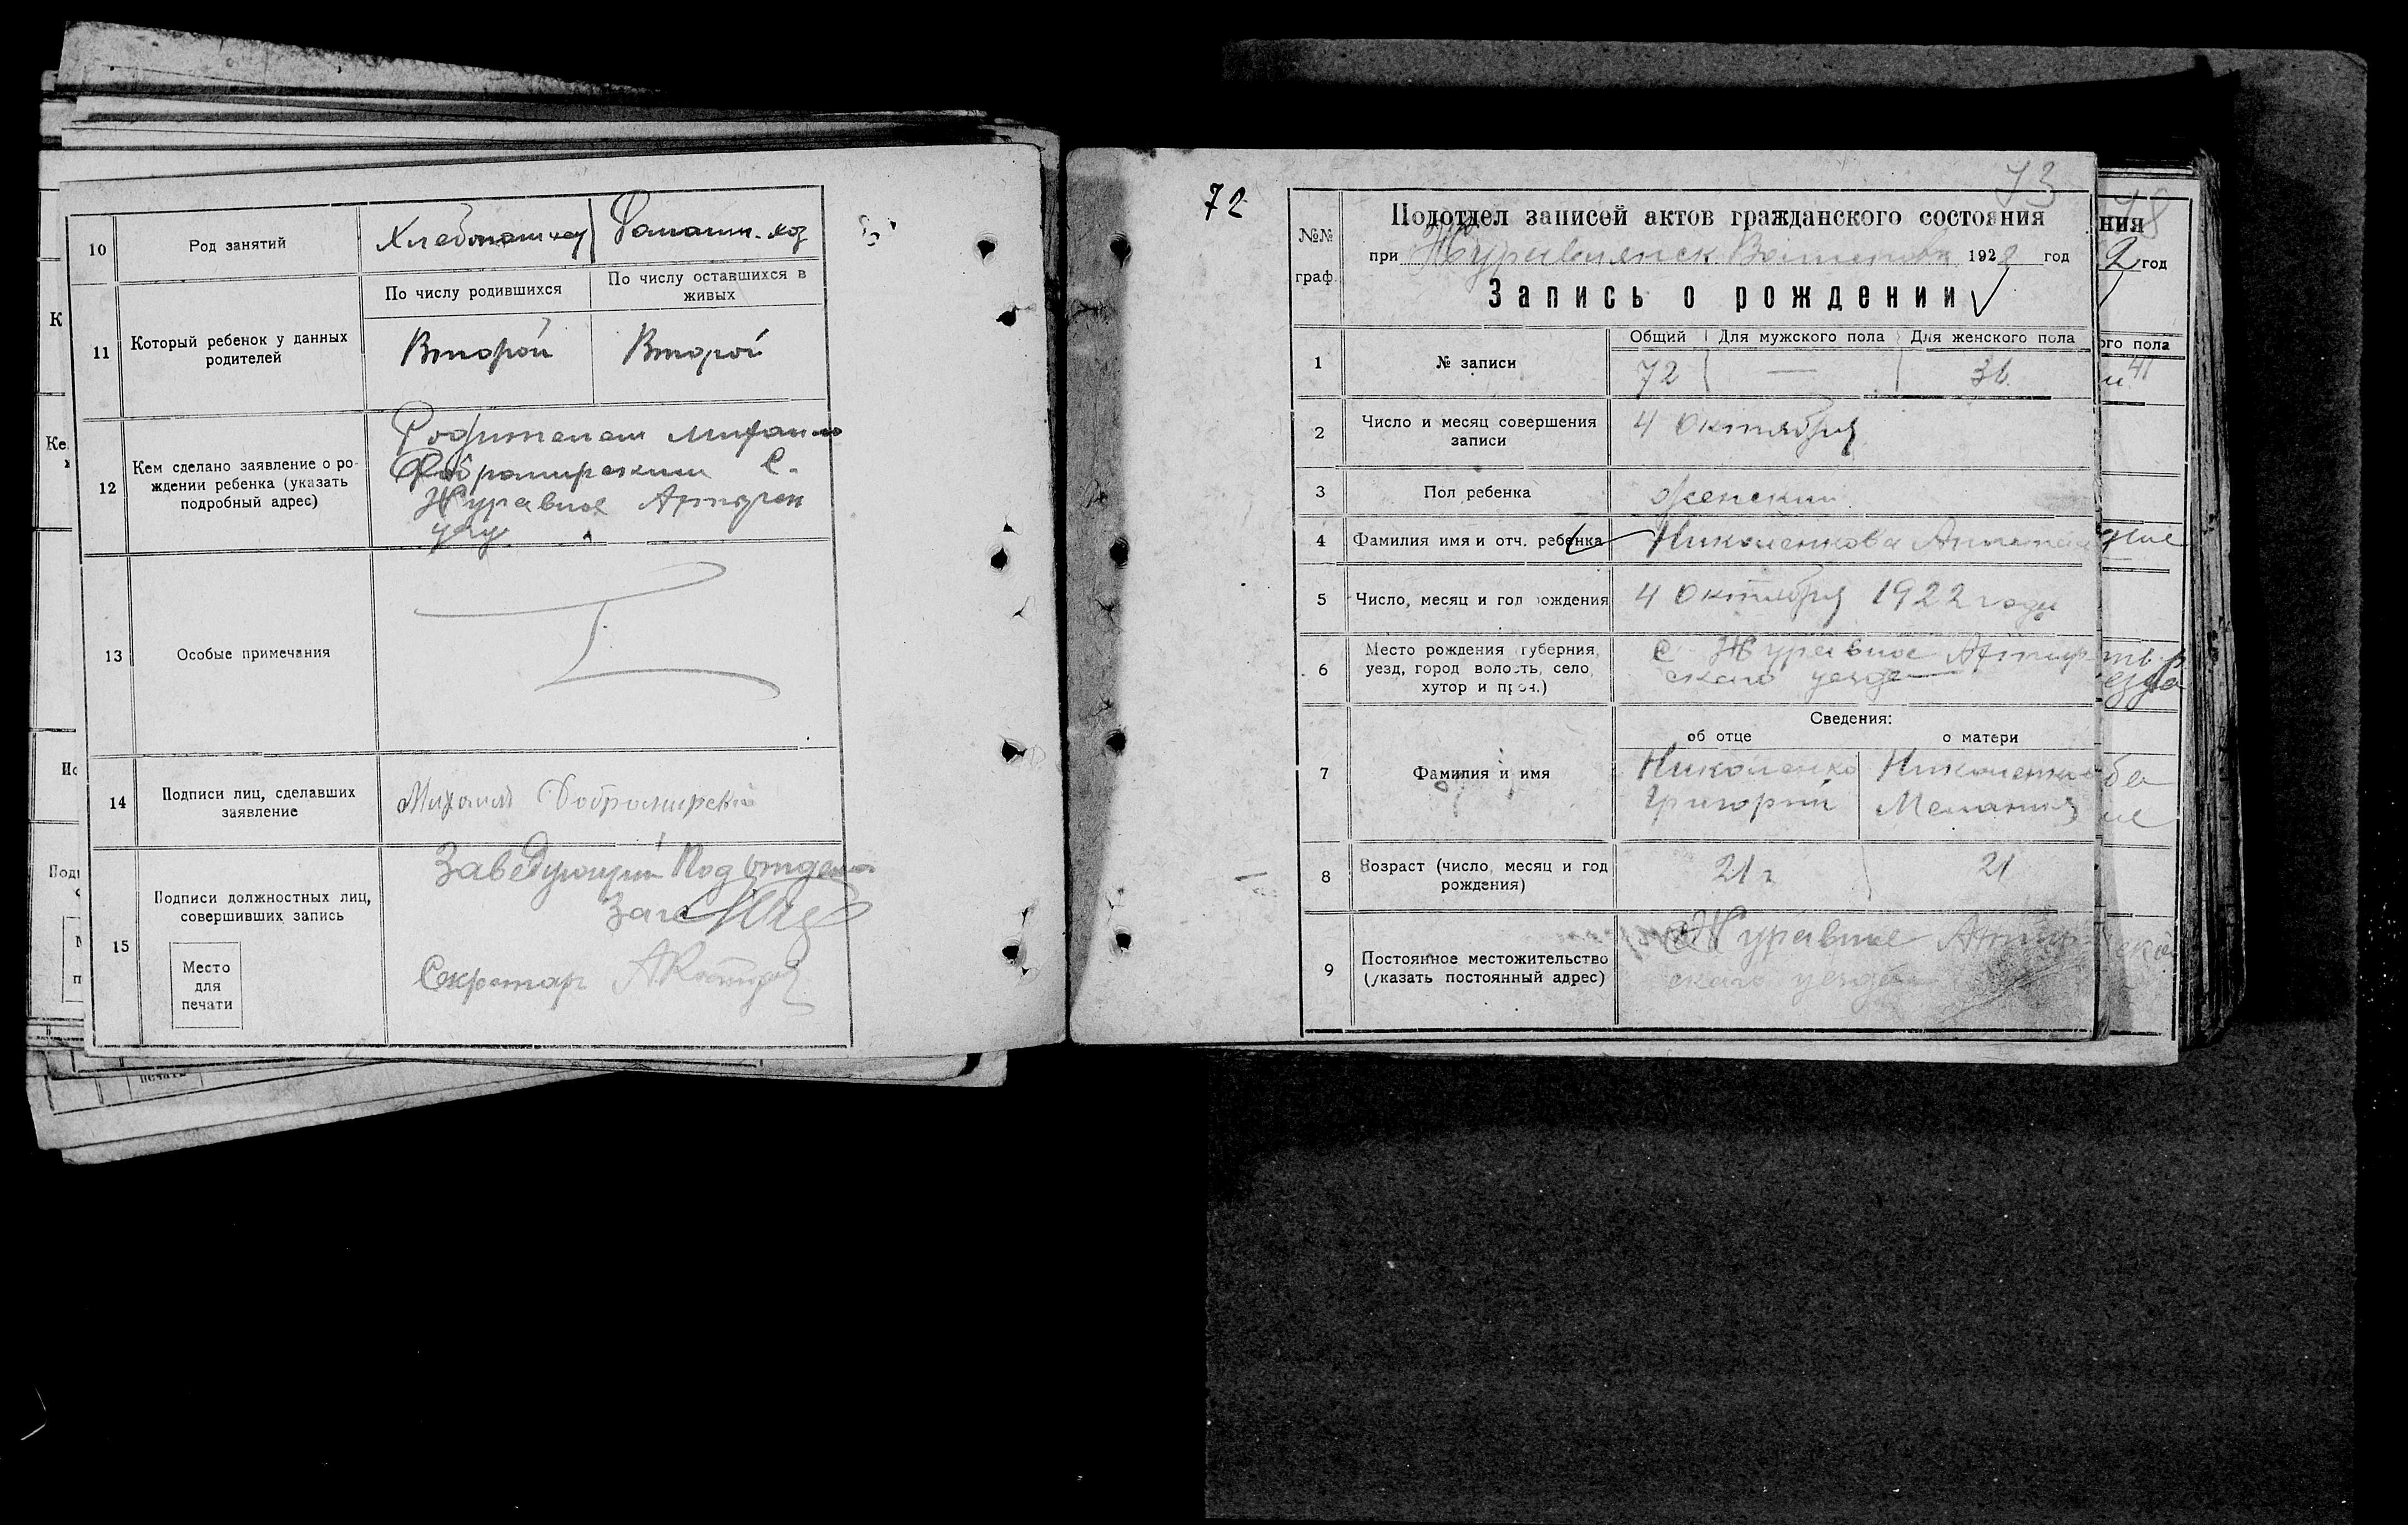 10
Род занятий
Хлебопашец
Домашн. хоз
11
Который ребенок у данных
родителей
По числу родившихся
По числу оставшихся в
живых
Второй
Второй
12
Кем сделано заявление о ро-
ждении ребенка (указать
подробный адрес)
Родителем Михаилом
Добромирским С.
Журавное Ахтырск
уезд
13
Особые примечания
14
Подписи лиц, сделавших
заявление
Михаил Добромирский
15
Подписи должностных лиц,
совершивших запись
Место
для
печати
Заведующий Подотделом
Загс
Секретарь
72
73
№№
граф.
Подотдел записей актов гражданского состояния
при Журавлянск. 1922 год
Запись о рождении
1
№ записи
Общий
Для мужского пола
Для женского пола
72
—
36
2
Число и месяц совершения
записи
4 Октября
3
Пол ребенка
Женский
4
Фамилия имя и отч. ребенка
Николенкова
5
Число, месяц и год рождения
4 Октября 1922 года
6
Место рождения губерния,
уезд, город волость, село,
хутор и проч.)
С Журавное Ахтыр
ского уезда
7
Фамилия и имя
Сведения:
об отце
о матери
Николенко
Григорий
Николенкова
Мелания
8
Возраст (число, месяц и год
рождения)
21 г
21
9
Постоянное местожительство
(указать постоянный адрес)
с Журавное Ахтыр
ского уезда
ния
2 год
ого пола
41